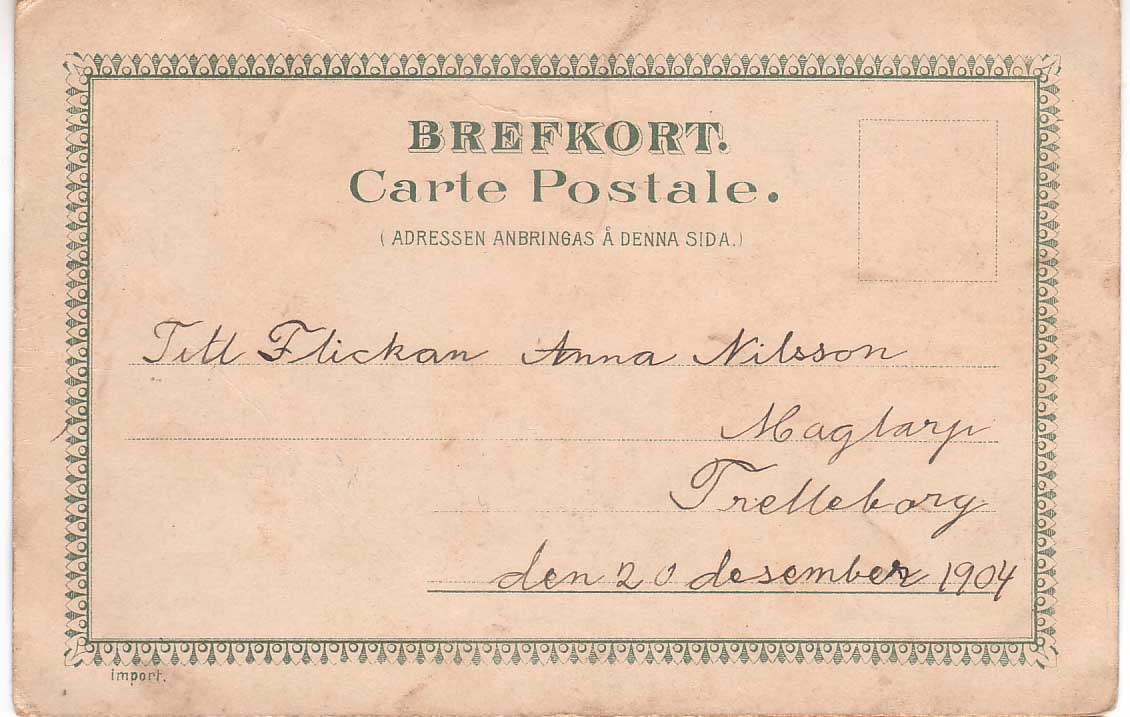 BREFKORT.
Carte Postale.
(ADRESSEN ANBRINGAS Å DENNA SIDA.)
Till Flickan Anna Nilsson
Maglarp
Trelleborg
den 20 desember 1904
Import.